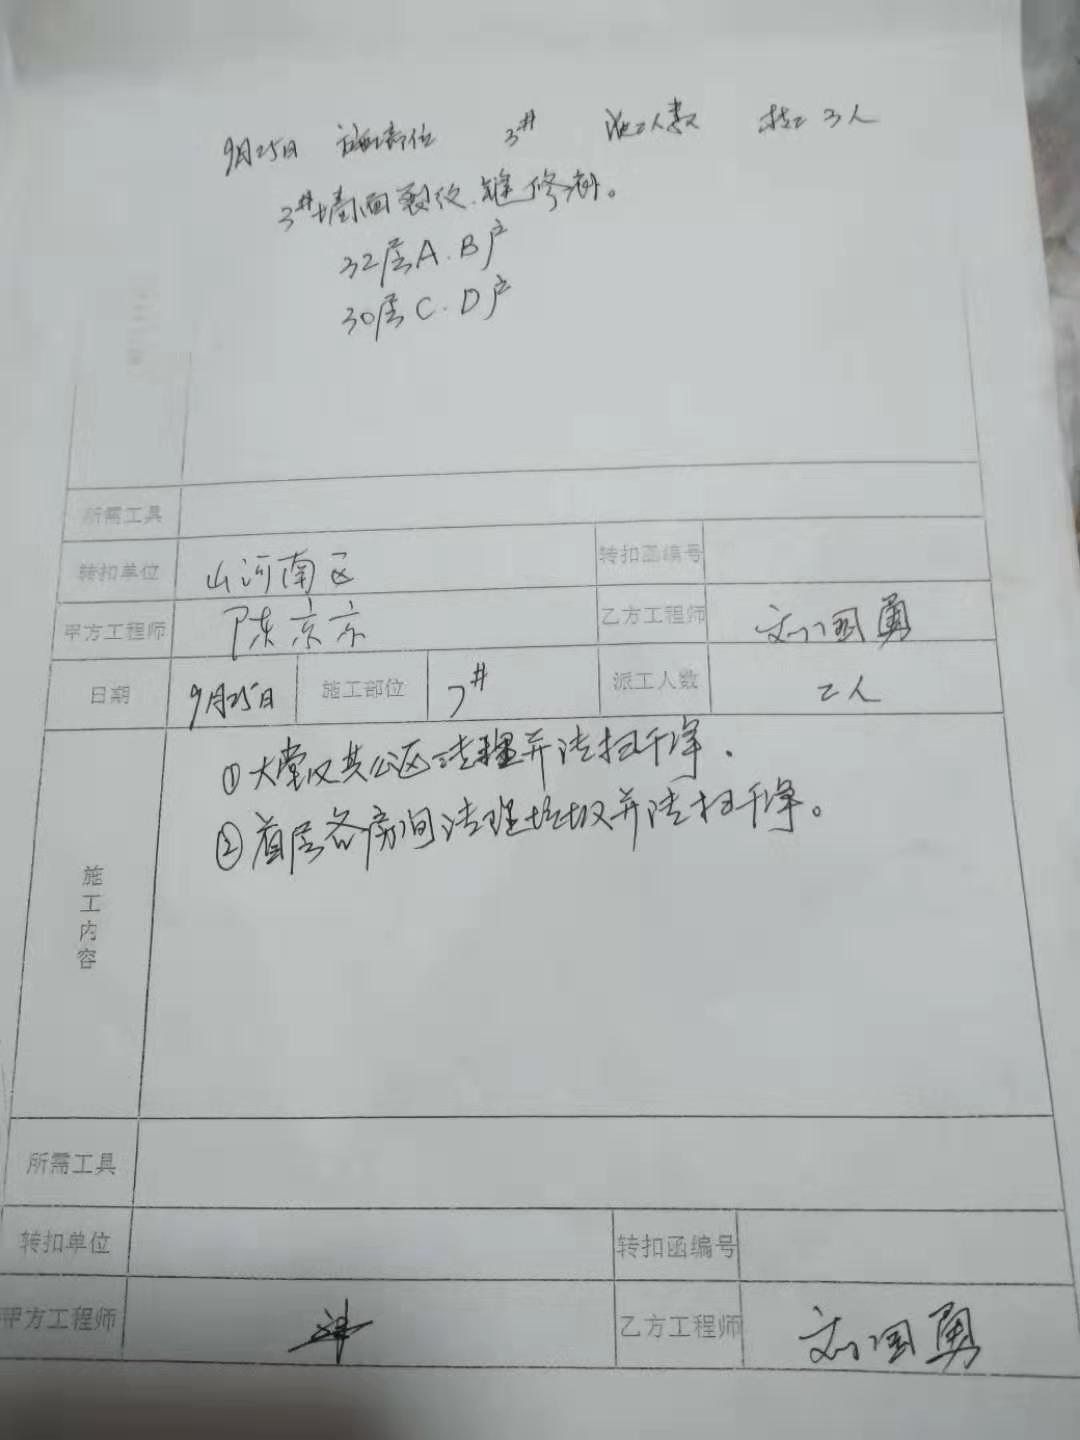 9月25日 施工部位 3# 派工人数 技工3人
3#墙面裂纹.缝修补。
32层A.B户
30层C.D户
所需工具
转扣单位 山河南区 转扣函编号
甲方工程师 陈京京 乙方工程师 刘国勇
日期 9月25日 施工部位 7# 派工人数 2人
①大堂及其公区清理并清扫干净.
②首层各房间清理垃圾并清扫干净。
施工内容
所需工具
转扣单位 转扣函编号
甲方工程师 乙方工程师 刘国勇